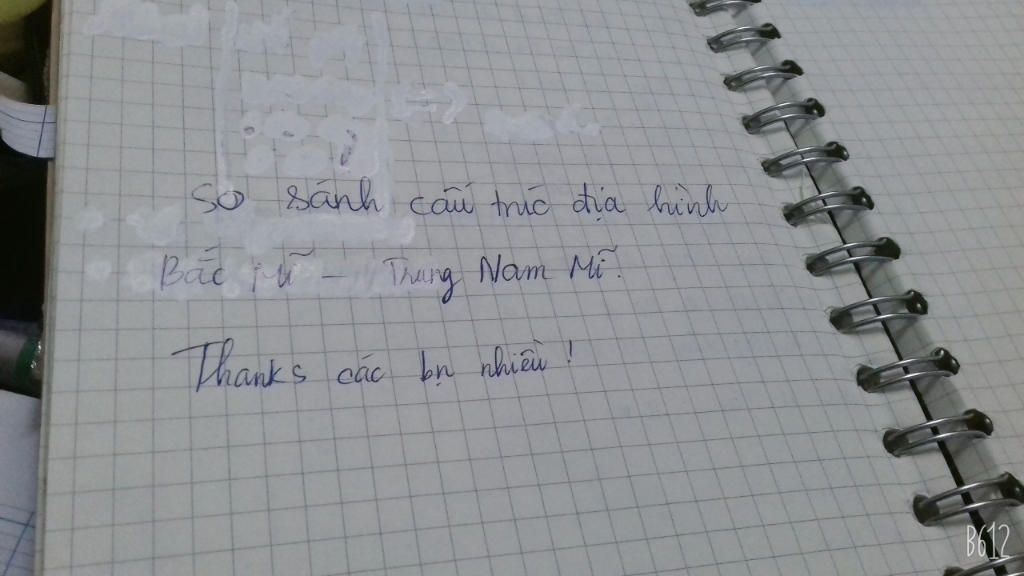 So sánh cấu trúc địa hình
Bắc Mĩ - Trung Nam Mĩ.
Thanks các bn nhiều!
B612